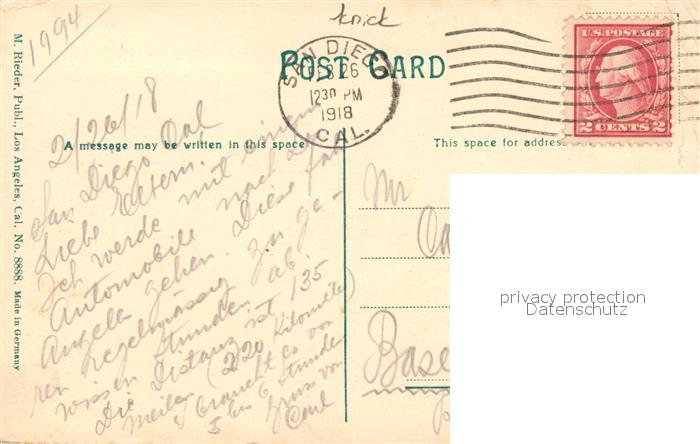 1994
knick
POST CARD
SAN DIEGO
FEB 26
1230 PM
1918
CAL.
U.S. POSTAGE
2 CENTS 2
M. Rieder, Publ., Los Angeles, Cal. No. 8888. Made in Germany
A message may be written in this space
This space for addres
2/26/18
San Diego Cal
Liebe Eltern.
Ich werde mit einem
Automobile nach Los
Angeles gehen. Diese fah
ren regelmässig zu ge-
wissen Stunden ab.
Die Distanz ist 135
Meilen (220 Kilometer)
braucht es von
5 bis 6 Stunden
Gruss von
Carl
Mr
Ca
Base
privacy protection
Datenschutz